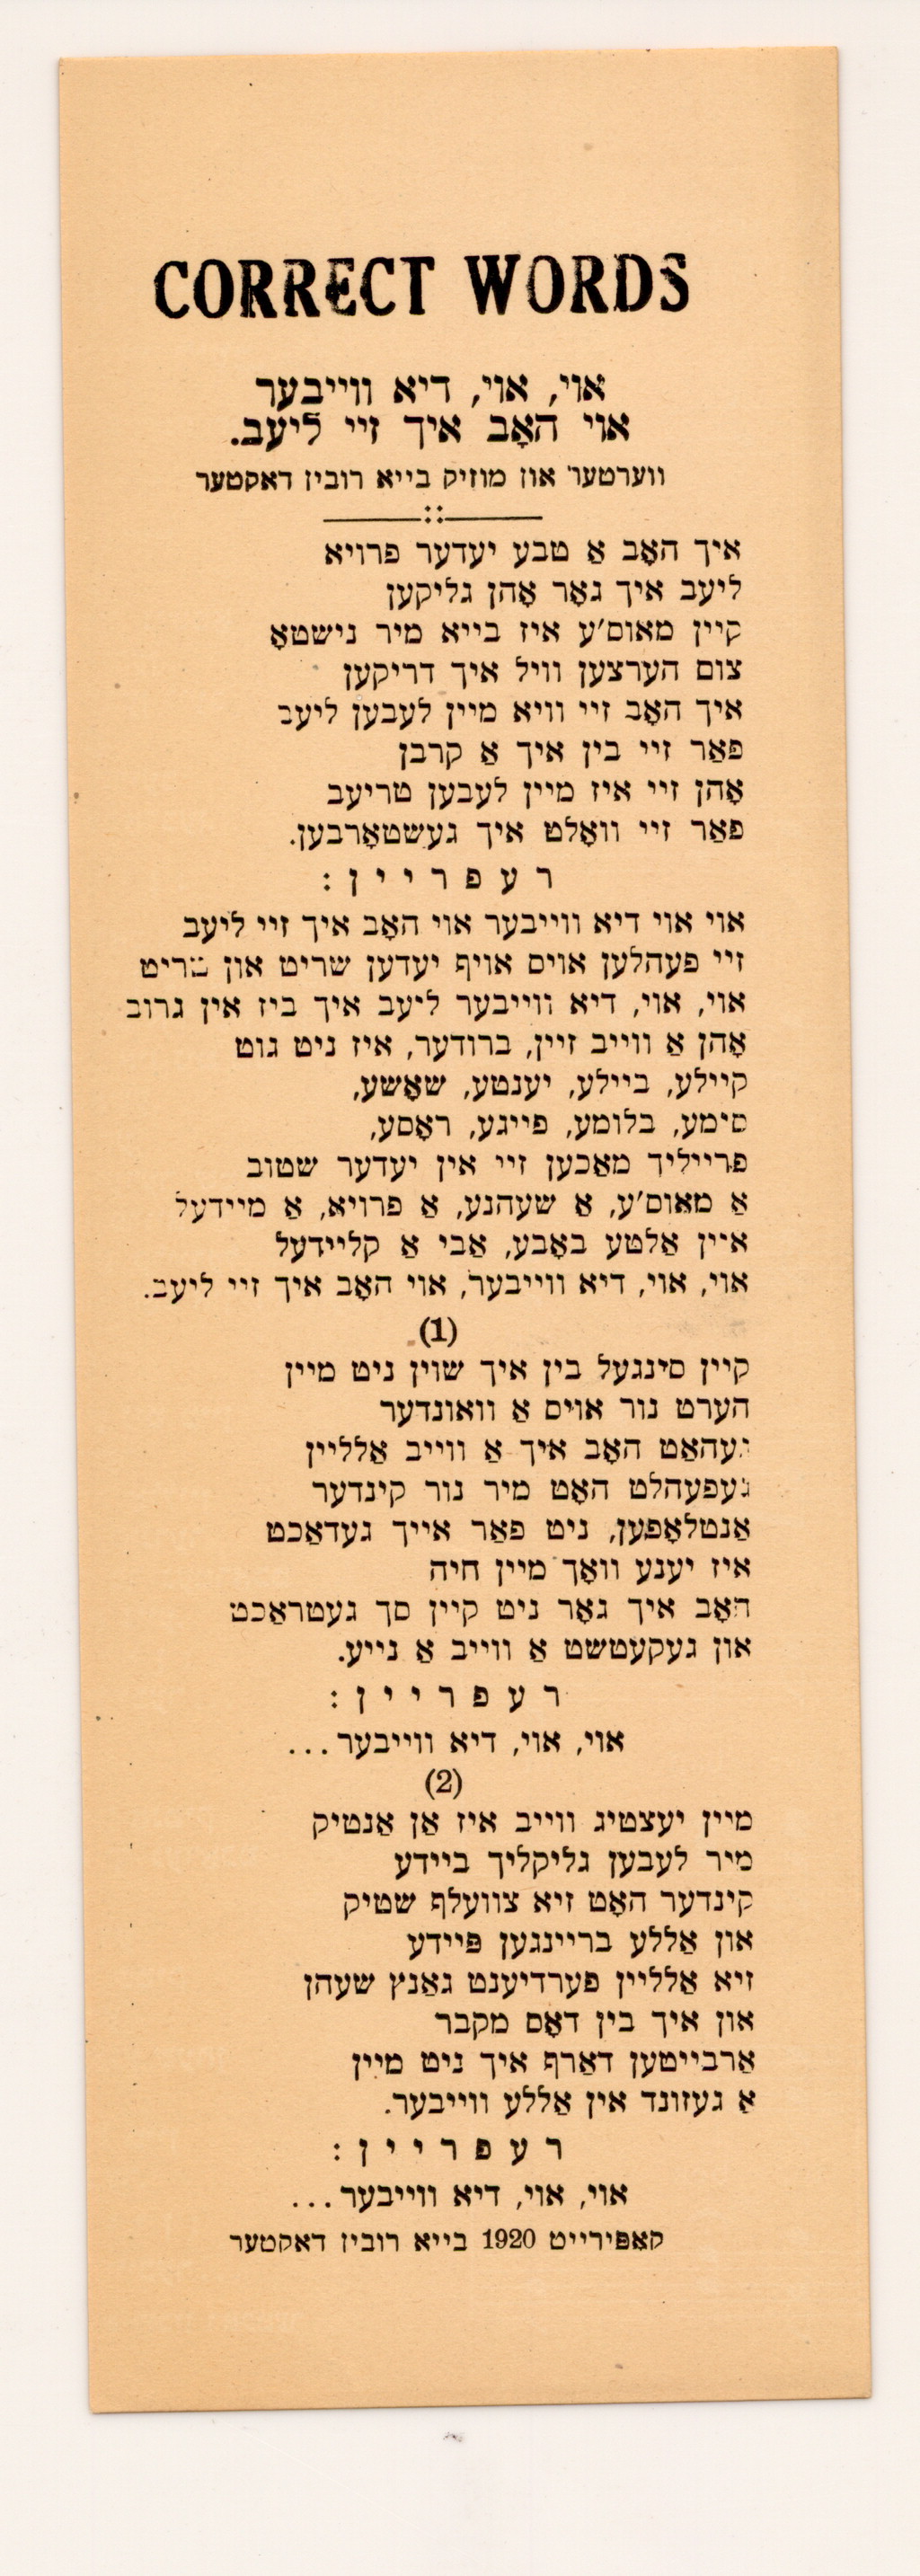 CORRECT WORDS
אוי, אוי, דיא ווייבער
אוי האָב איך זיי ליעב.
ווערטער און מוזיק בייא רובין דאקטער
איך האָב אַ טבע יעדער פרויא
ליעב איך גאָר אָהן גליקען
קיין מאוס'ע איז בייא מיר נישטאָ
צום הערצען וויל איך דריקען
איך האָב זיי וויא מיין לעבען ליעב
פאַר זיי בין איך אַ קרבן
אָהן זיי איז מיין לעבען טריעב
פאַר זיי וואָלט איך געשטאָרבען.
רעפריין:
אוי אוי דיא ווייבער אוי האָב איך זיי ליעב
זיי פעהלען אויס אויף יעדען שריט און טריט
אוי, אוי, דיא ווייבער ליעב איך ביז אין גרוב
אָהן אַ ווייב זיין, ברודער, איז ניט גוט
קיילע, ביילע, יענטע, שאָשע,
סימע, בלומע, פייגע, ראָסע,
פרייליך מאַכען זיי אין יעדער שטוב
אַ מאוס'ע, אַ שעהנע, אַ פרויא, אַ מיידעל
איין אַלטע באָבע, אַבי אַ קליידעל
אוי, אוי, דיא ווייבער, אוי האָב איך זיי ליעב.
(1)
קיין סינגעל בין איך שוין ניט מיין
הערט נור אויס אַ וואונדער
געהאַט האָב איך אַ ווייב אַלליין
געפעהלט האָט מיר נור קינדער
אַנטלאָפען, ניט פאַר אייך געדאַכט
איז יענע וואָך מיין חיה
האָב איך גאָר ניט קיין סך געטראַכט
און געקעטשט אַ ווייב אַ נייע.
רעפריין:
אוי, אוי, דיא ווייבער...
(2)
מיין יעצטיג ווייב איז אַן אַנטיק
מיר לעבען גליקליך ביידע
קינדער האָט זיא צוועלף שטיק
און אַללע בריינגען פיידע
זיא אַלליין פערדיענט גאַנץ שעהן
און איך בין דאָס מקבר
אַרבייטען דאַרף איך ניט מיין
אַ געזונד אין אַללע ווייבער.
רעפריין:
אוי, אוי, דיא ווייבער...
קאָפּירייט 1920 בייא רובין דאקטער